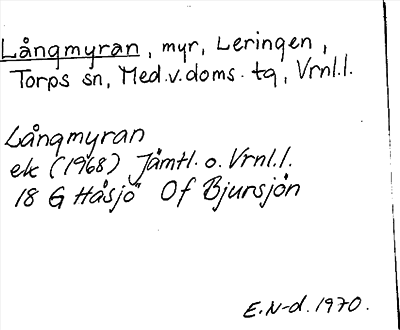 Långmyran, myr, Leringen,
Torps sn, Med.v.doms. tg, Vrnl.l.
Långmyran
ek (1968) Jämtl. o. Vrnl.l.
18 G Håsjö Of Bjursjön
E.N-d. 1970.